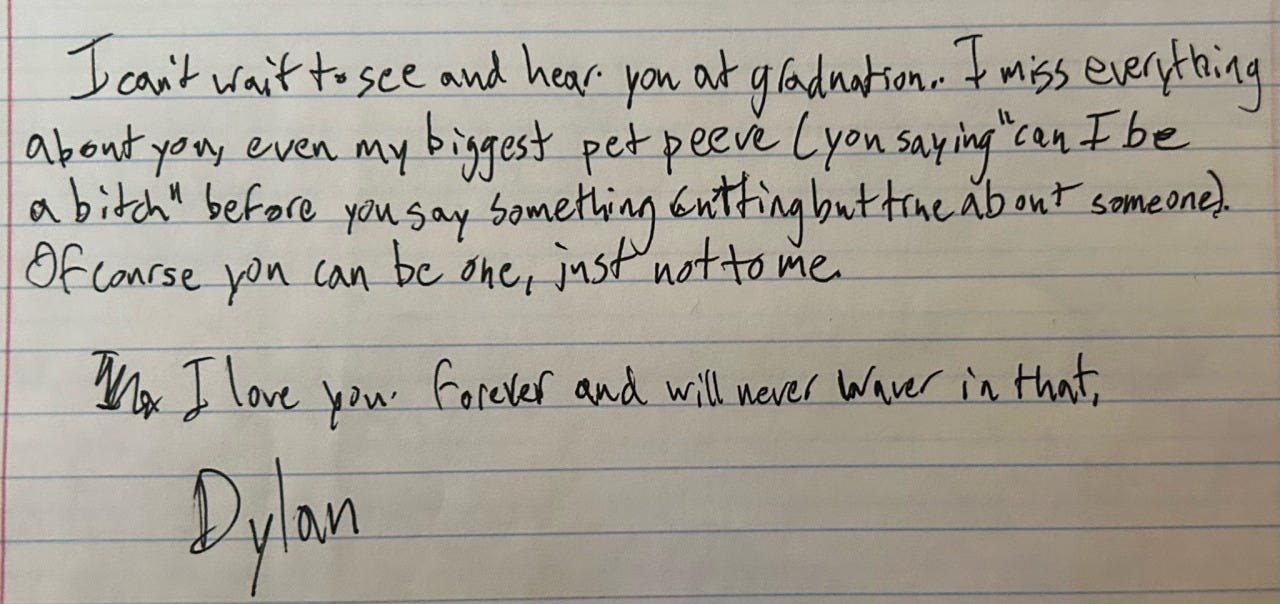 I can't wait to see and hear you at graduation. I miss everything
about you, even my biggest pet peeve (you saying "can I be
a bitch" before you say something cutting but true about someone).
Of course you can be one, just not to me.
I love you. Forever and will never waver in that,
Dylan